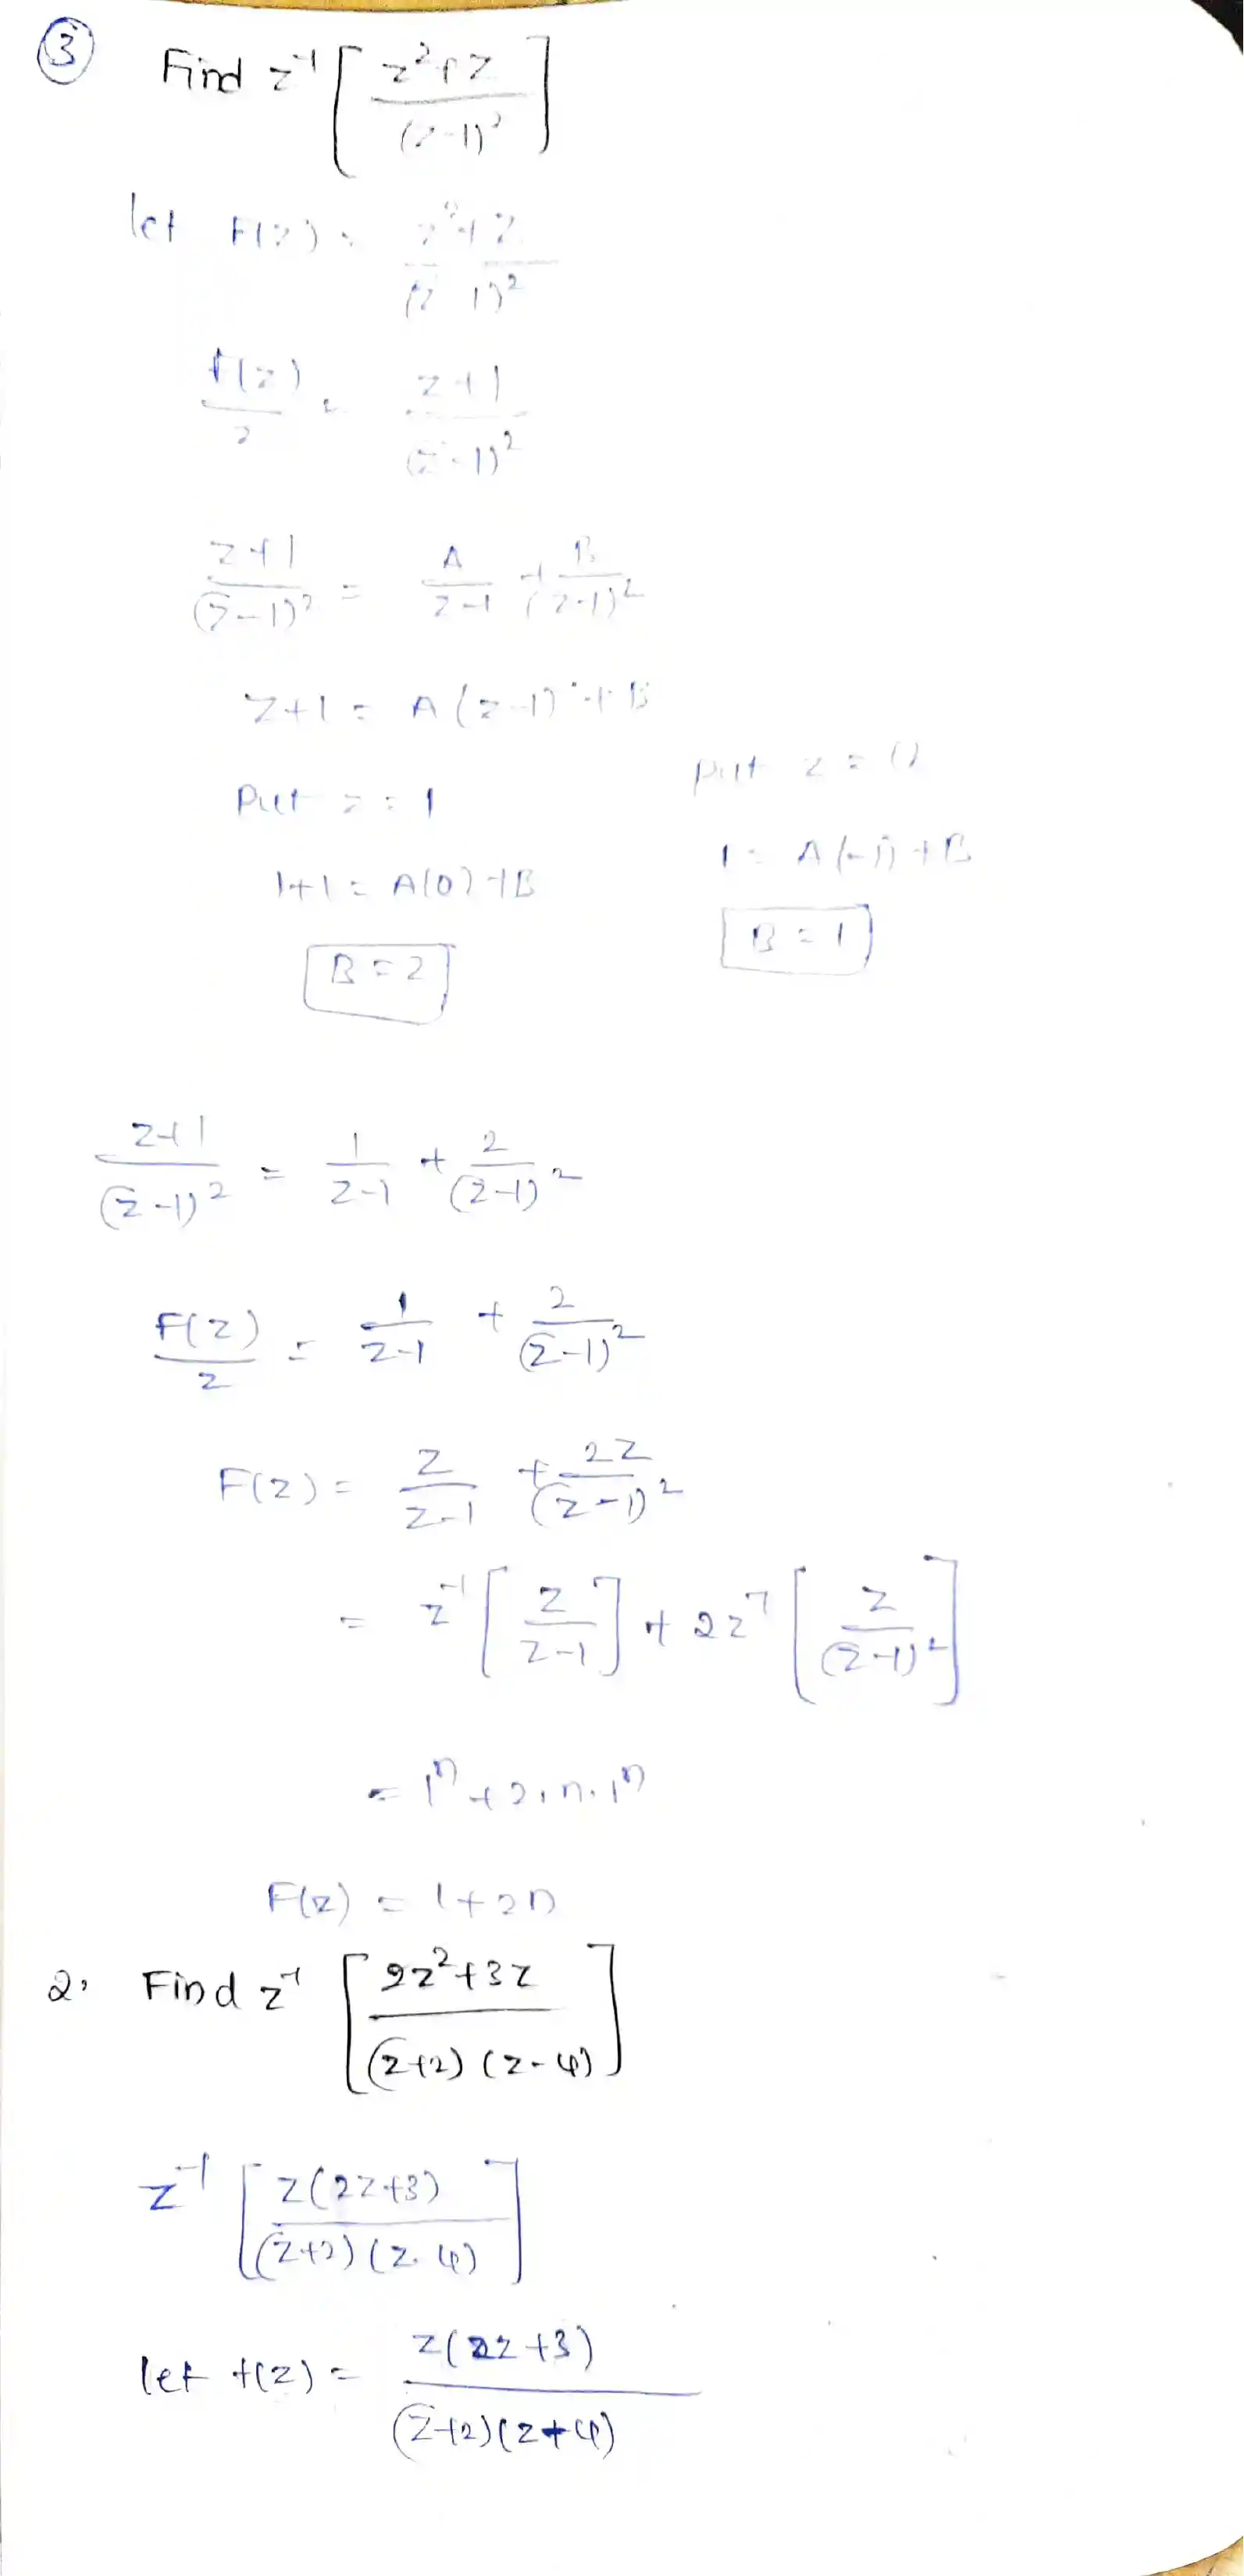 ③ Find z⁻¹ [ z²+z / (z-1)² ]
let F(z) = z²+z / (z-1)²
F(z)/z = z+1 / (z-1)²
z+1 / (z-1)² = A / z-1 + B / (z-1)²
z+1 = A(z-1) + B
Put z = 1
put z = 0
1+1 = A(0)+B
1 = A(-1)+B
B = 2
B = 1
z+1 / (z-1)² = 1 / z-1 + 2 / (z-1)²
F(z)/z = 1 / z-1 + 2 / (z-1)²
F(z) = z / z-1 + 2z / (z-1)²
= z⁻¹ [ z / z-1 ] + 2z⁻¹ [ z / (z-1)² ]
= 1ⁿ + 2.n.1ⁿ
F(z) = 1+2n
2. Find z⁻¹ [ 2z²+3z / (z+2)(z-4) ]
z⁻¹ [ z(2z+3) / (z+2)(z-4) ]
let f(z) = z(2z+3) / (z+2)(z+4)